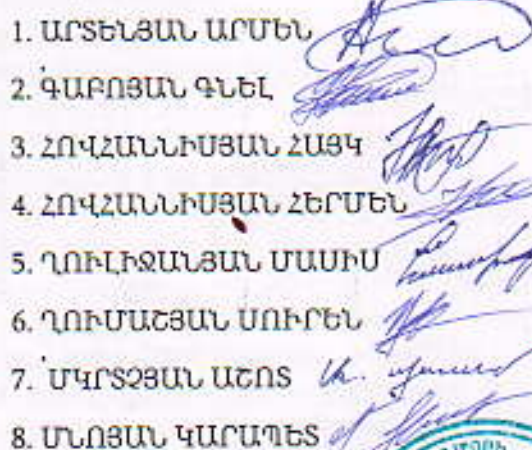 1. ԱՐՏԵՆՅԱՆ ԱՐՄԵՆ
2. ԳԱԲՈՅԱՆ ԳՆԵԼ
3. ՀՈՎՀԱՆՆԻՍՅԱՆ ՀԱՅԿ
4. ՀՈՎՀԱՆՆԻՍՅԱՆ ՀԵՐՄԵՆ
5. ՂՈՒԼԻՋԱՆՅԱՆ ՄԱՍԻՍ
6. ՂՈՒՄԱՇՅԱՆ ՍՈՒՐԵՆ
7. ՄԿՐՏՉՅԱՆ ԱՇՈՏ
8. ՄՆՈՅԱՆ ԿԱՐԱՊԵՏ